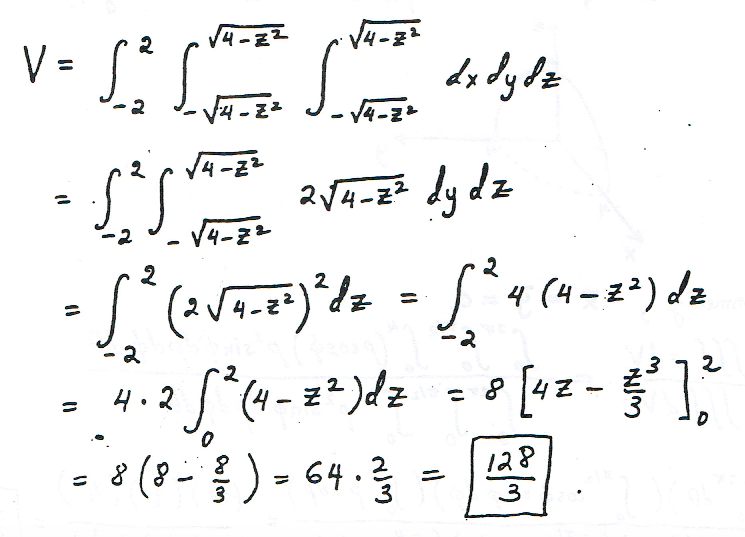 V = ∫_{-2}^{2} ∫_{-√(4-z²)}^{√(4-z²)} ∫_{-√(4-z²)}^{√(4-z²)} dx dy dz
= ∫_{-2}^{2} ∫_{-√(4-z²)}^{√(4-z²)} 2√(4-z²) dy dz
= ∫_{-2}^{2} (2√(4-z²))² dz = ∫_{-2}^{2} 4(4-z²) dz
= 4·2 ∫_{0}^{2} (4-z²) dz = 8 [4z - z³/3]_{0}^{2}
= 8(8 - 8/3) = 64·2/3 = 128/3.